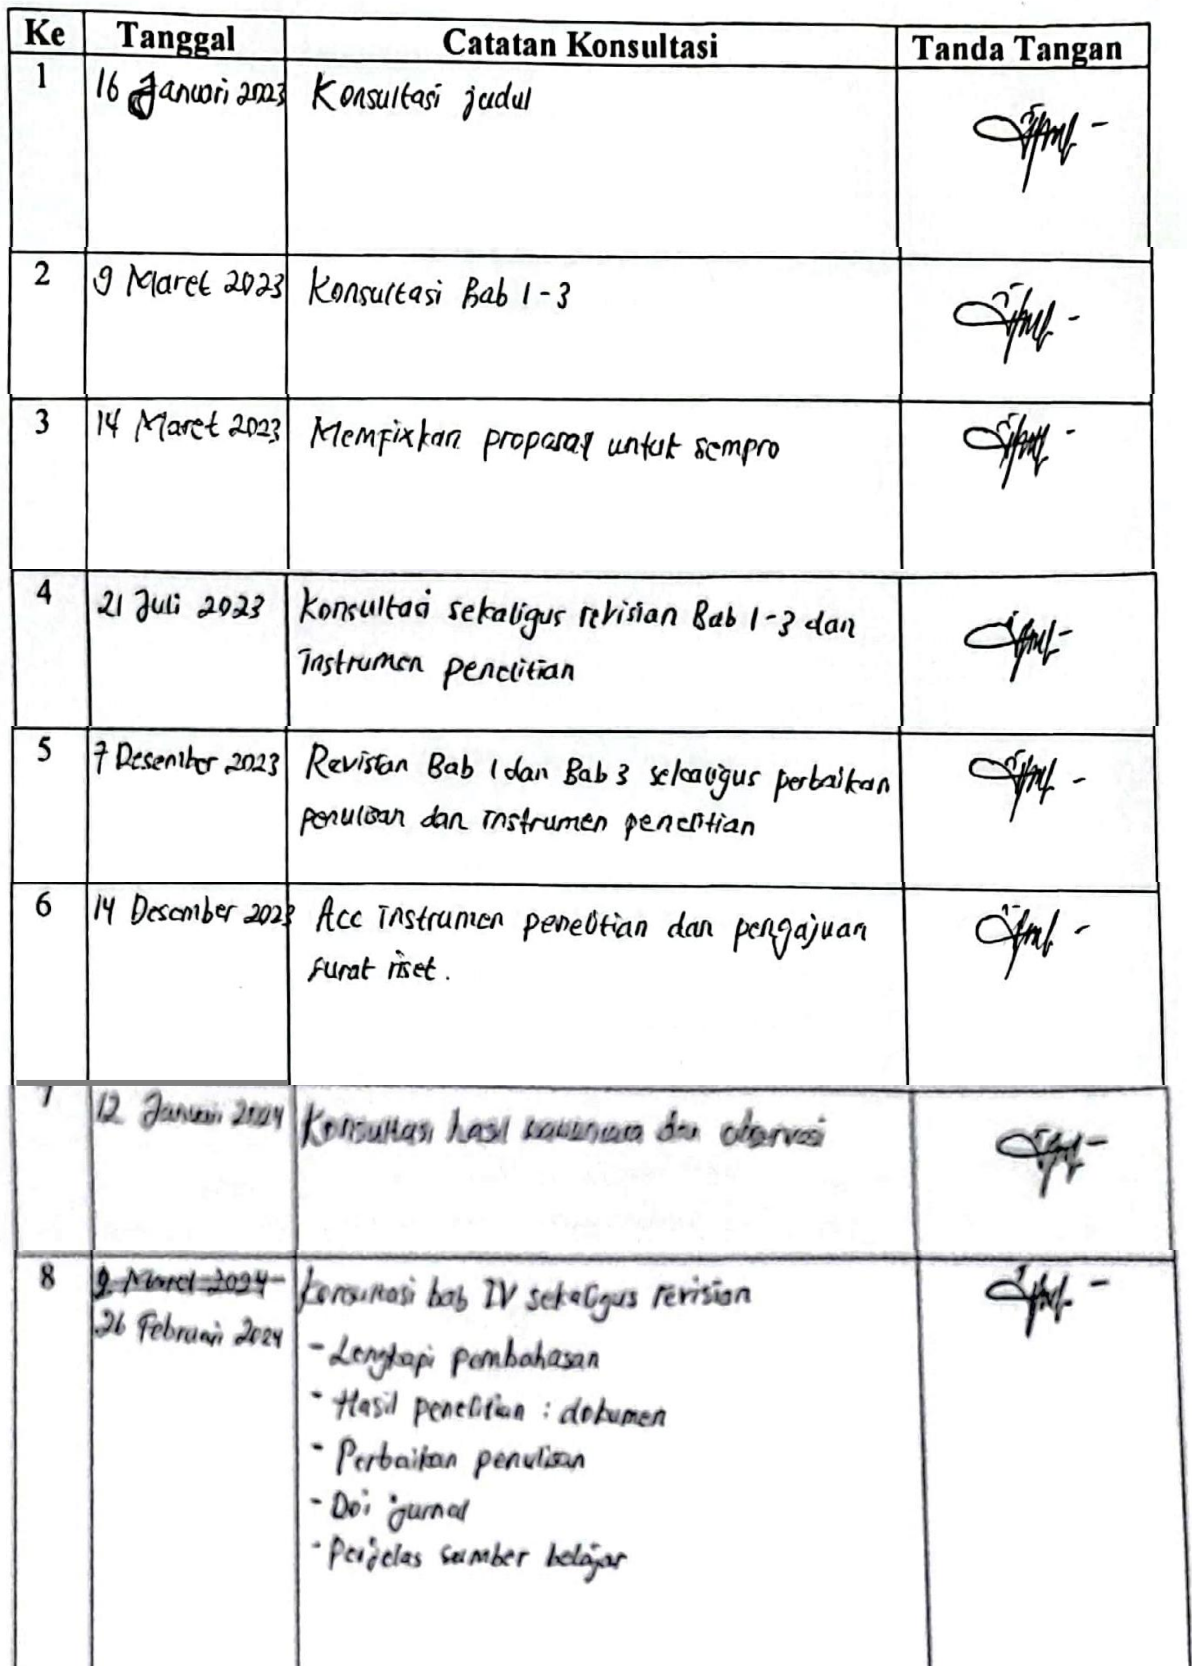 Ke Tanggal Catatan Konsultasi Tanda Tangan
1 16 Januari 2023 Konsultasi judul
2 9 Maret 2023 Konsultasi Bab 1-3
3 14 Maret 2023 Memfixkan proposal untuk sempro
4 21 Juli 2023 Konsultasi sekaligus revisian Bab 1-3 dan
Instrumen penelitian
5 7 Desember 2023 Revisian Bab 1 dan Bab 3 sekaligus perbaikan
penulisan dan instrumen penelitian
6 14 Desember 2023 Acc instrumen penelitian dan pengajuan
surat riset.
7 12 Januari 2024 Konsultasi hasil wawancara dan observasi
8 9 Maret 2024 Konsultasi bab IV sekaligus revisian
26 Februari 2024
- Lengkapi pembahasan
- Hasil penelitian : dokumen
- Perbaikan penulisan
- Doi jurnal
- Perjelas sumber belajar